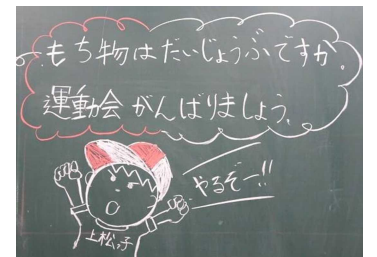 もち物はだいじょうぶですか。
運動会がんばりましょう。
やるぞー!!
上松っ子